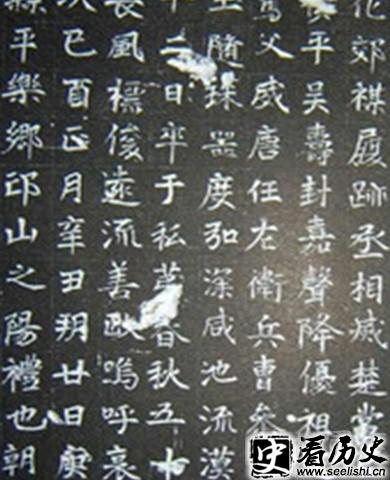 郊禖履跡丞相威楚常
平吳壽封嘉聲降優祖
父威唐任左衛兵曹參
隨珠器度弘深咸池流漢
十二日卒于私苐春秋五十
風標俊遠流善歐嗚呼哀
次己酉正月辛丑朔廿日庚
縣平樂鄉邙山之陽禮也朝
史 看历史
www.seelishi.com